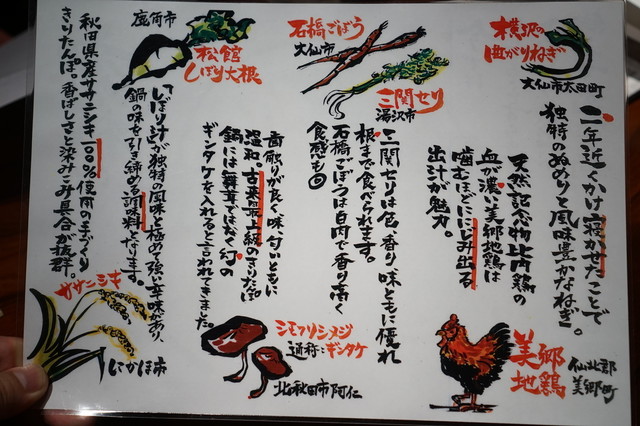 横沢の
曲がりねぎ
大仙市太田町
二年近くかけ寝かせたことで
独特のぬめりと風味豊かなねぎ。
天然記念物比内鶏の
血が濃い美郷地鶏は
噛むほどににじみ出る
出汁が魅力。
美郷
地鶏
仙北郡
美郷町
石橋ごぼう
大仙市
三関セリ
湯沢市
三関セリは色、香り、味ともに優れ
根まで食べられます。
石橋ごぼうは白肉で香り高く
食感も◎
歯触りが良く、味、匂いともに
温和。古来最上級のきりたんぽ
鍋には舞茸ではなく幻の
ギンタケを入れると言われてきました。
シモフリシメジ
通称:ギンタケ
北秋田市阿仁
鹿角市
松館
しぼり大根
「しぼり汁」が独特の風味と極めて強い辛味があり、
鍋の味を引き締める調味料となります。
秋田県産ササニシキ100%使用の手づくり
きりたんぽ。香ばしさと染みこみ具合が抜群。
ササニシキ
にかほ市